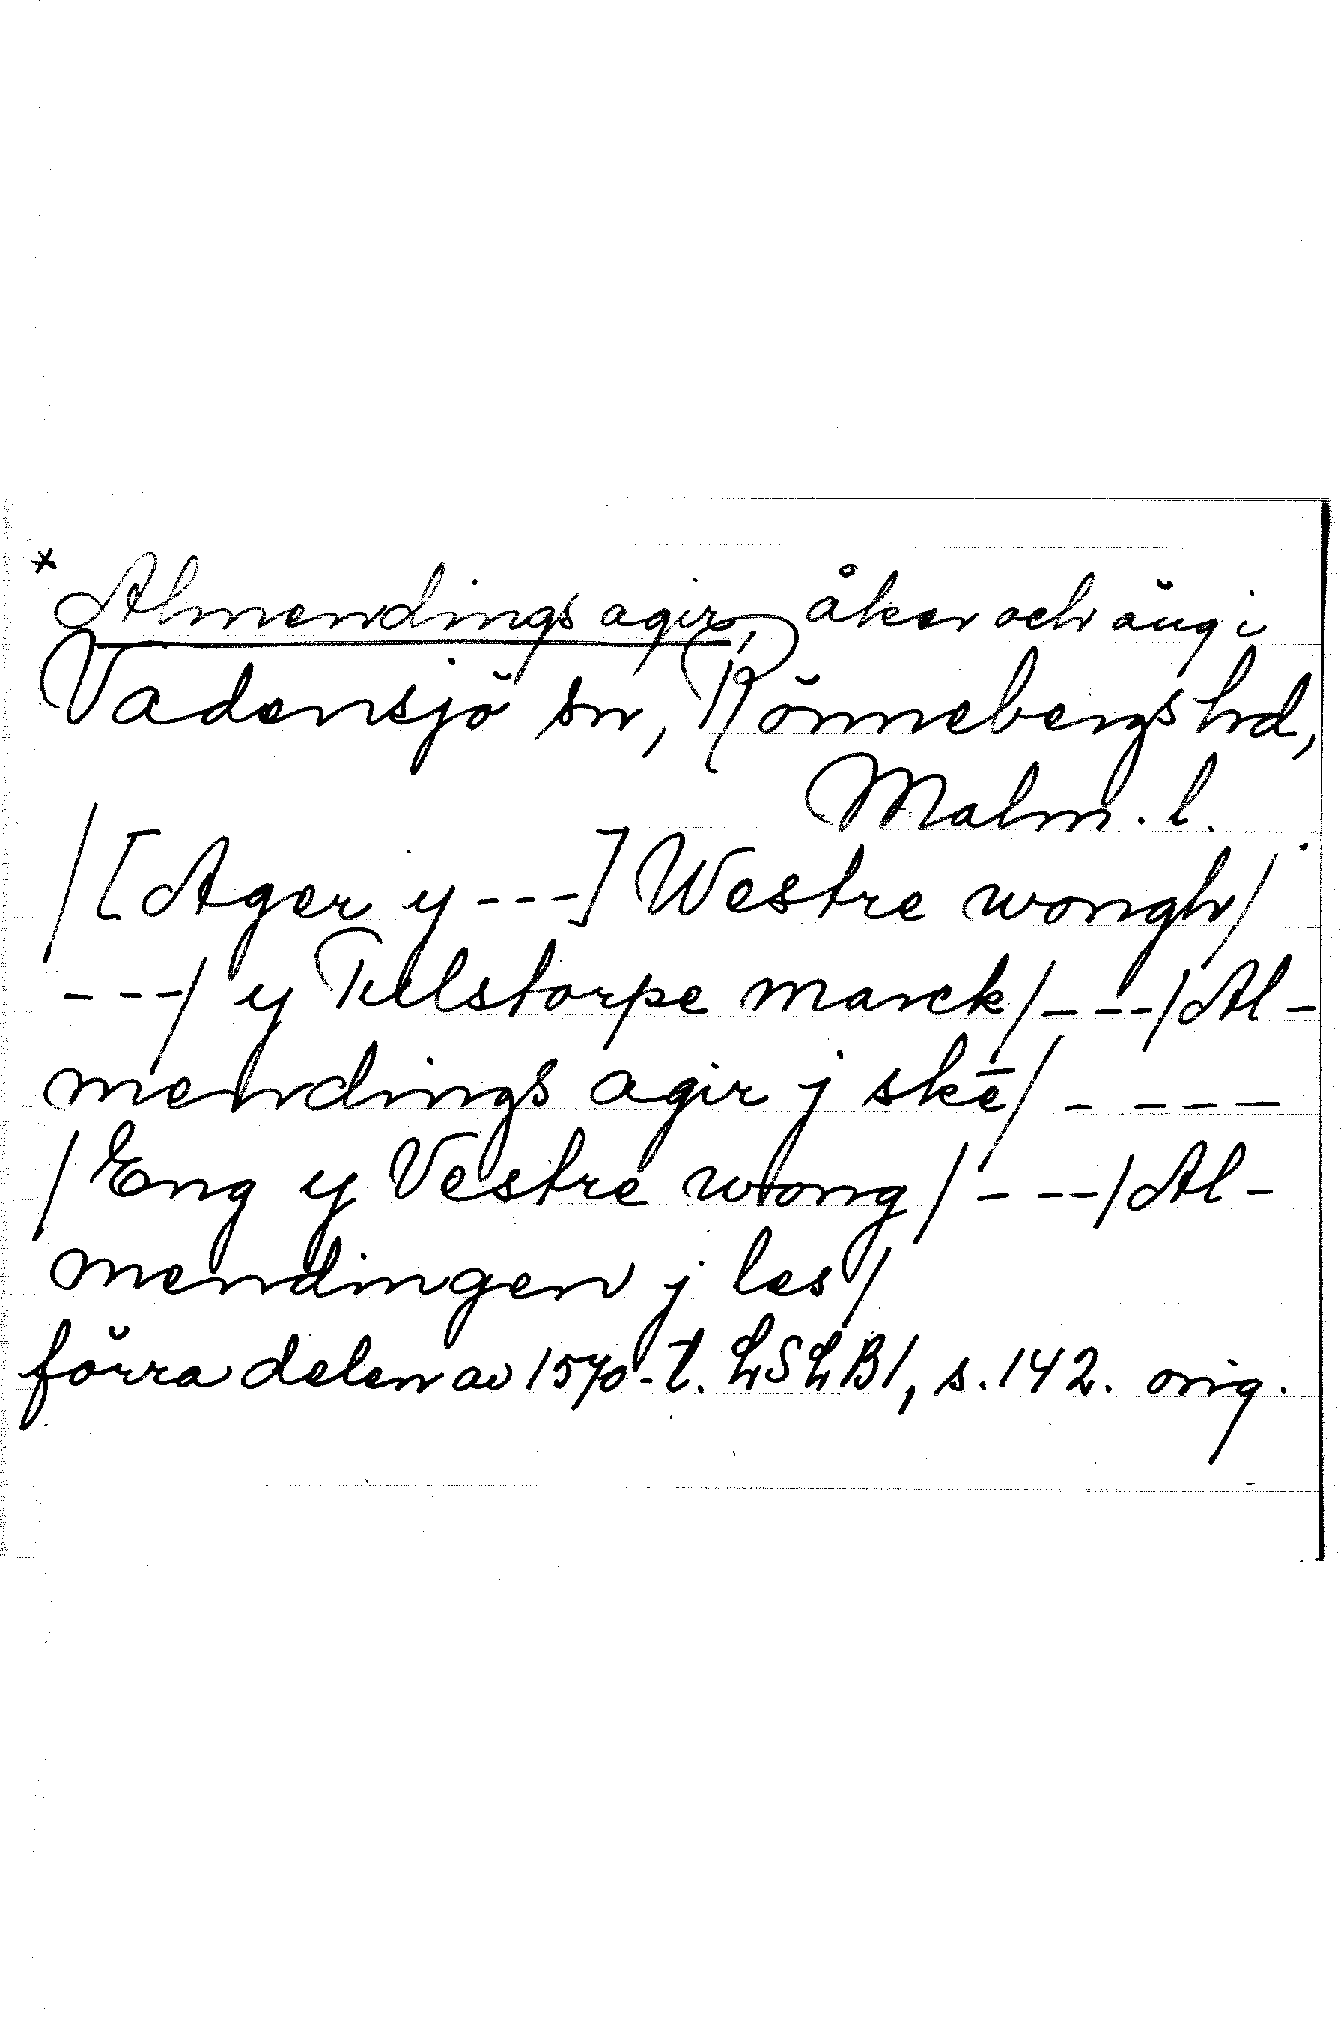 * Almendings agir, åker och äng i
Vadensjö sn, Rönnebergs hd,
Malm. l.
/[Ager y ---] Westre wongh/
---/ y Tulstorpe marck/---/Al-
mendings agir j skē/ ----
/Eng y Vestre wong/---/Al-
mendingen j les/
förra delen av 1570-t. LSLB1, s. 142. orig.